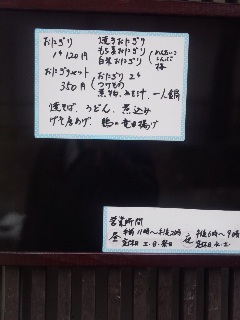 おにぎり
1ケ 120円
焼きおにぎり
もち麦おにぎり
白米おにぎり
めんたいこ
こんぶ
梅
おにぎりセット
350円
おにぎり 2ケ
つけもの
煮物、みそ汁、一人鍋
焼そば、うどん、煮込み
げそ唐あげ、鶏の竜田揚げ
営業時間
昼 午前11時〜午後2時
定休日 土・日・祭日
夜 午後6時〜9時
定休日